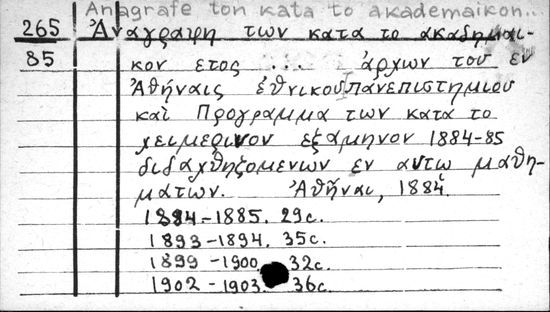 Anagrafe ton kata to akademaikon..
265 Ἀναγραφη των κατα το ακαδημαι-
85 κον ετος ... ἀρχων του εν
Ἀθήναις ἐθνικου πανεπιστημιου
καὶ Προγραμμα των κατα το
χειμερινον εξαμηνον 1884-85
διδαχθηζομενων εν αυτω μαθη-
ματων. Ἀθῆναι, 1884.
1884-1885. 29c.
1893-1894. 35c.
1899-1900. 32c.
1902-1903. 36c.